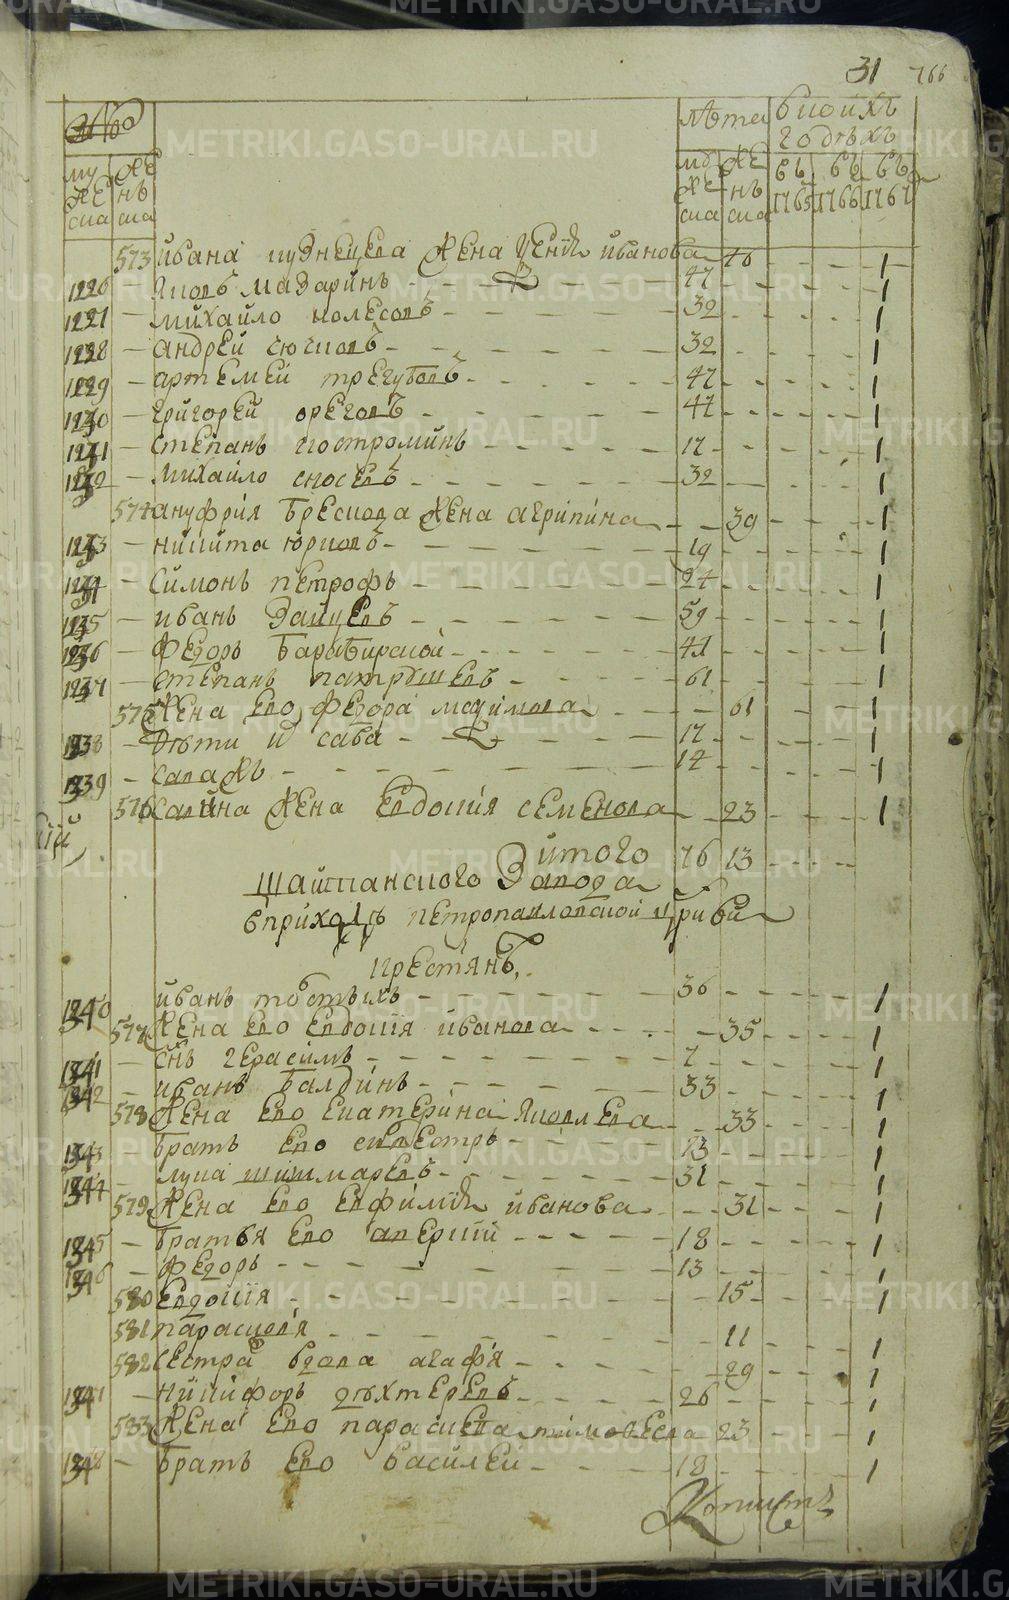 31 766
№
лѣта бытои хъ годѣхъ
му же ска
же нъ ска
му же ска
же нъ ска
въ 1765
въ 1766
въ 1767
573 ивана жена иванова 46 1
1226 Яковъ мазаринъ 47 1
1227 михайло колесовъ 32 1
1228 андрей сючковъ 32 1
1229 артемей трегубовъ 47 1
1230 григорей 47 1
1231 степанъ костроминъ 17 1
1232 михайло сносевъ 32 1
574 ануфрия жена агрипина 39 1
1233 никита юрковъ 19 1
1234 симонъ петрофъ 24 1
1235 иванъ зайцевъ 59 1
1236 Федоръ барабинской 41 1
1237 степанъ патрушевъ 61 1
575 жена ево федора максимова 61 1
1238 дѣти и сава 17 1
1239 14 1
576 савина жена евдокия семенова 23 1
итого 76 13
шайтанского завода
в приходѣ петропавловской церкви
крестянъ
1240 иванъ толстыхъ 36 1
577 жена ево евдокия иванова 35 1
1241 снъ герасимъ 7 1
1242 иванъ балдинъ 33 1
578 жена ево екатерина яковлева 33 1
1243 братъ ево силвестръ 13 1
1244 лука шишмаревъ 31 1
579 жена ево евфимия иванова 31 1
1245 братья ево аверкий 18 1
1246 федоръ 13 1
580 Евдокия 15 1
581 парасковя 11 1
582 сестра вдова агафя 29 1
1247 никифоръ дѣхтеревъ 26 1
583 жена ево парасковя тимофеева 23 1
1248 братъ ево василей 18 1
Копиистъ
METRIKI.GASO-URAL.RU